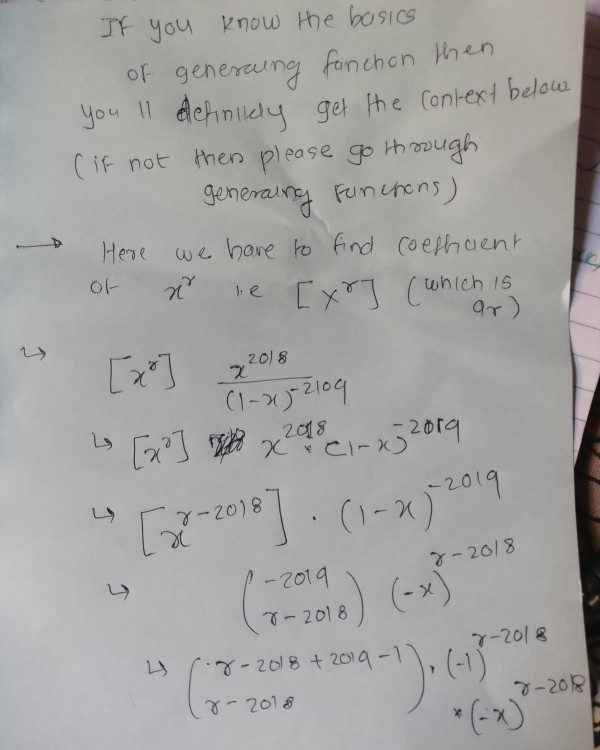 If you know the basics
of generating function then
you'll definitely get the context below
(if not then please go through
generating functions)
→ Here we have to find coefficient
of x^r i.e [x^r] (which is
ar)
↳ [x^r] x^2018 / (1-x)^-2109
↳ [x^r] x^2018 . (1-x)^-2019
↳ [x^r-2018] . (1-x)^-2019
↳ (-2019
r-2018) (-x)^r-2018
↳ (r-2018+2019-1
r-2018) . (-1)^r-2018
* (-x)^r-2018